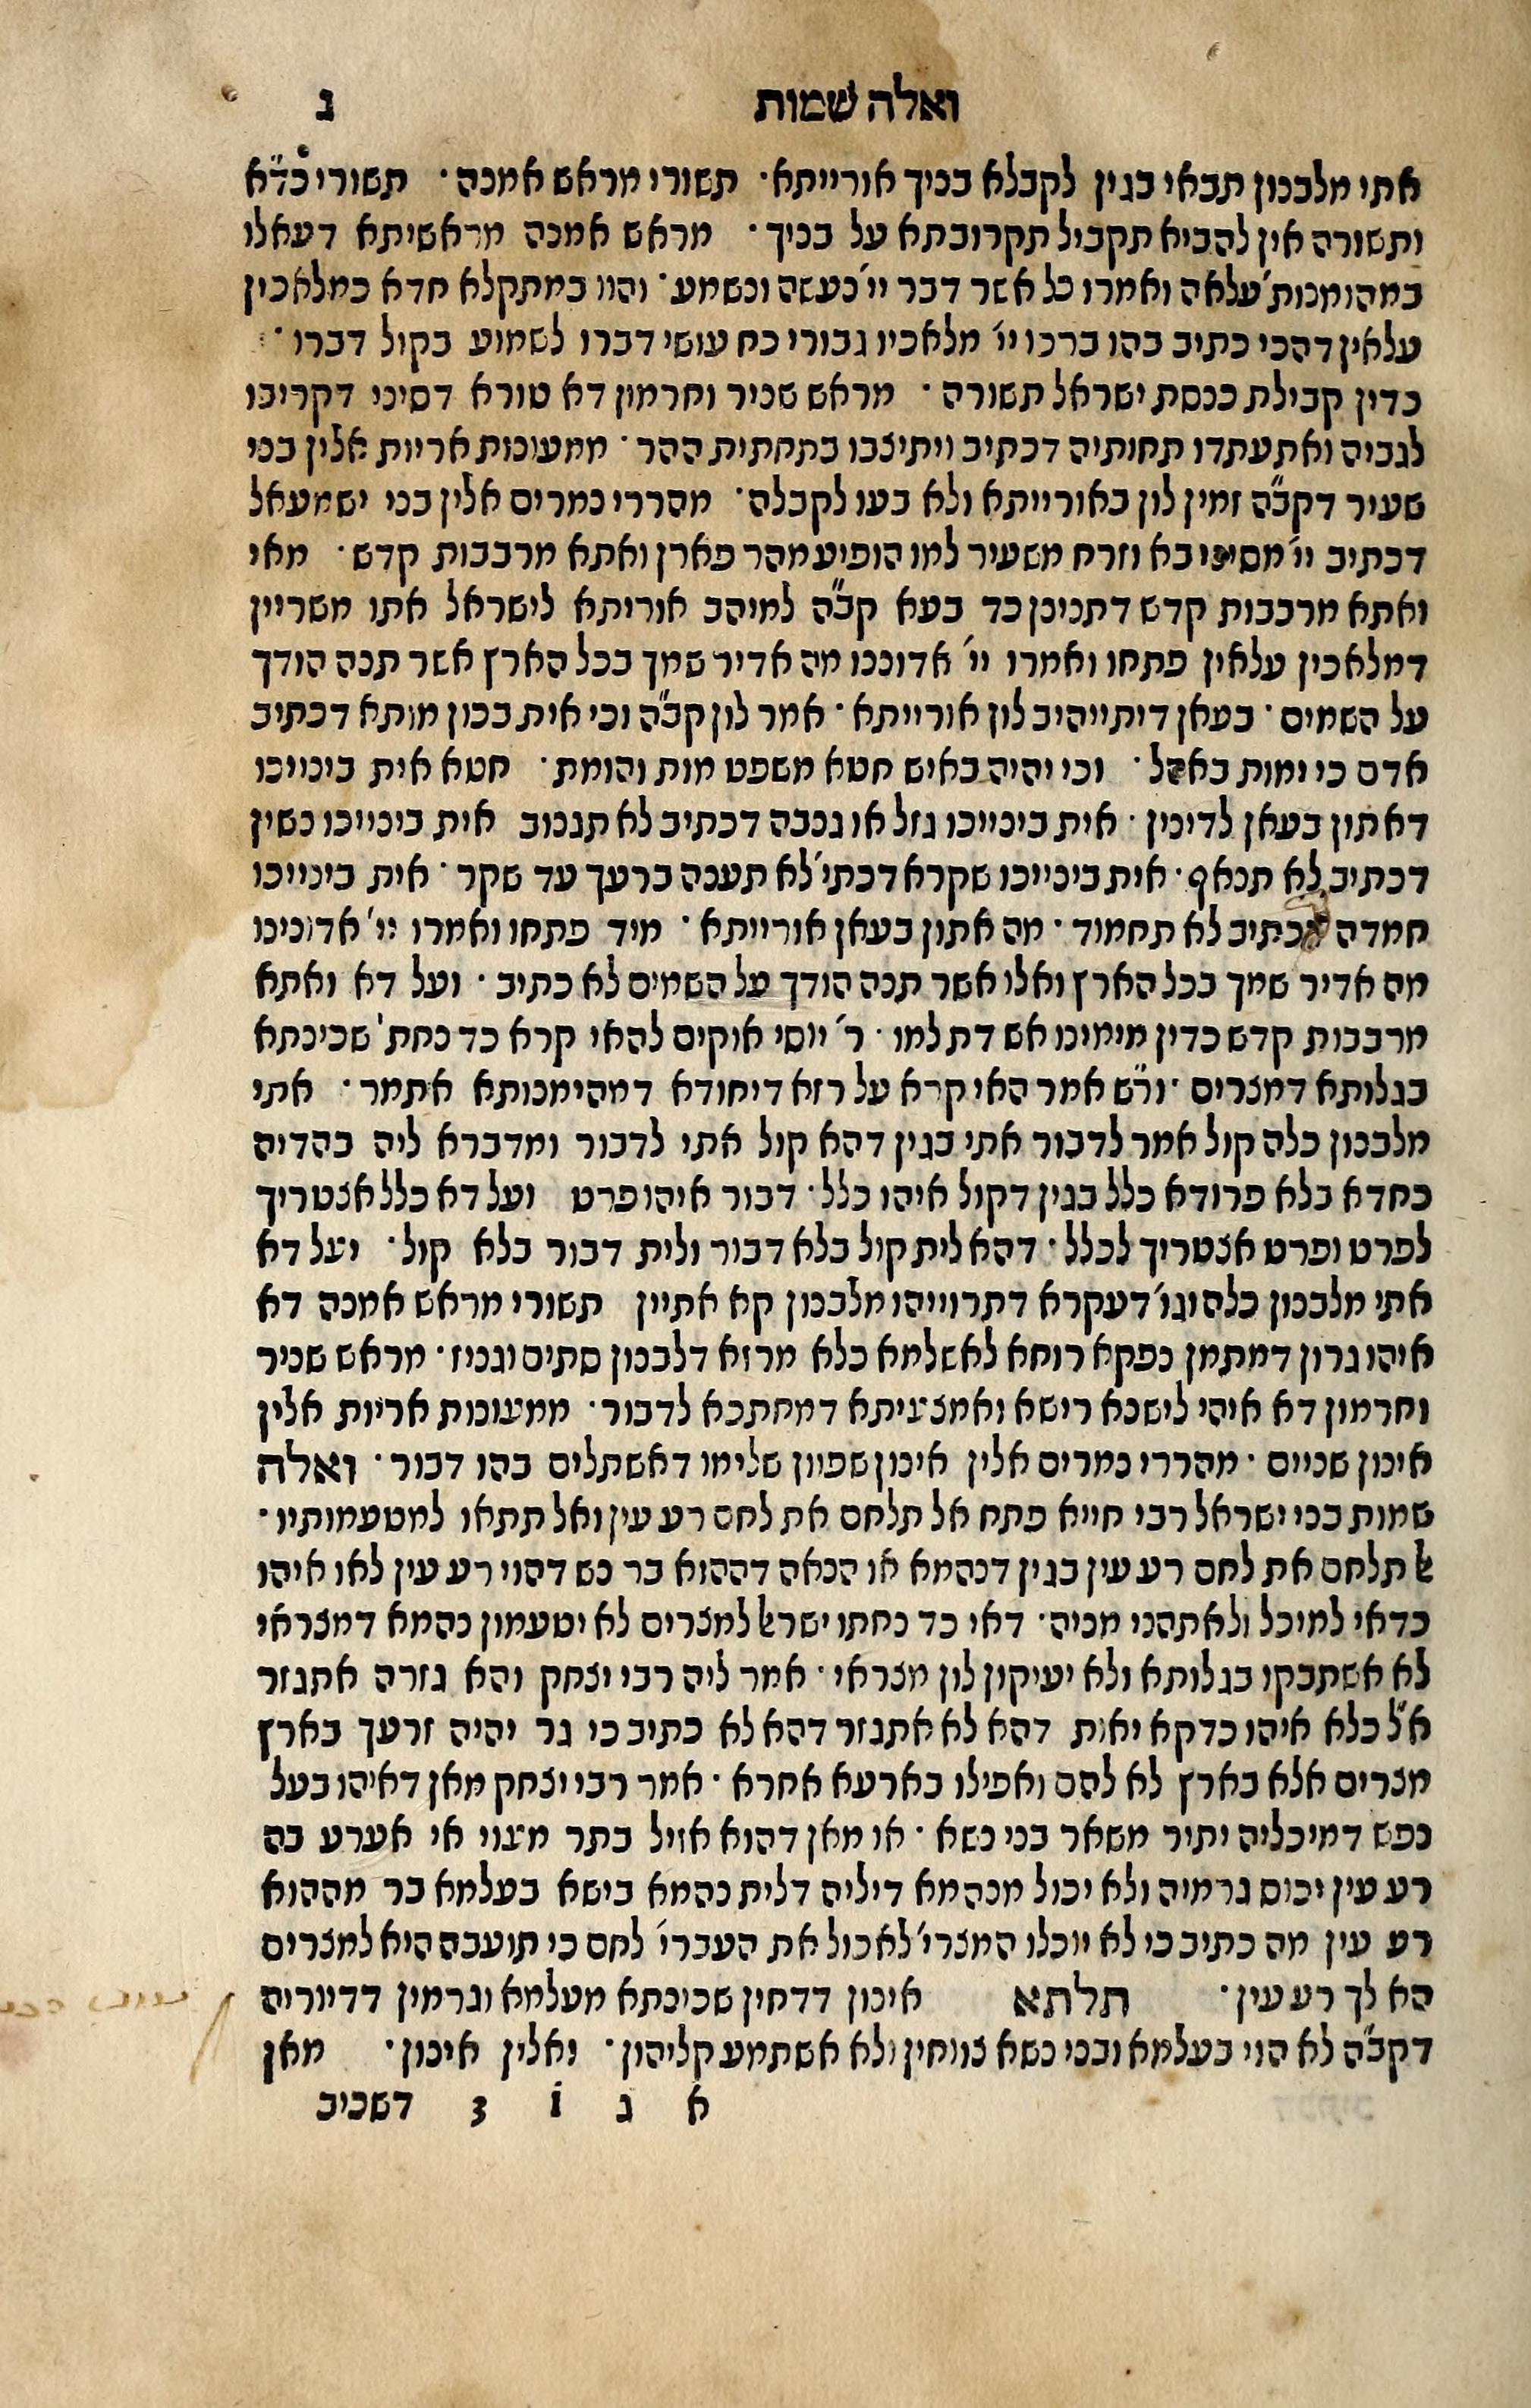 ואלה שמות ג
אתי מלבנון תבאי בגין לקבלא בניך אורייתא· תשורי מראש אמנה· תשורי כד״א
ותשורה אין להביא תקביל תקרובתא על בניך· מראש אמנה מראשיתא דעאלו
במהומנות׳ עלאה ואמרו כל אשר דבר יי׳ נעשה ונשמע· והוו במתקלא חדא כמלאכין
עלאין דהכי כתיב בהו ברכו יי׳ מלאכיו גבורי כח עושי דברו לשמוע בקול דברו·
כדין קבילת כנסת ישראל תשורה· מראש שניר וחרמון דא טורא דסיני דקריבו
לגביה ואתעתדו תחותיה דכתיב ויתיצבו בתחתית ההר· ממעונות אריות אלין בני
שעיר דקב״ה זמין לון באורייתא ולא בעו לקבלה· מהררי נמרים אלין בני ישמעאל
דכתיב יי׳ מסיני בא וזרח משעיר למו הופיע מהר פארן ואתא מרבבות קדש· מאי
ואתא מרבבות קדש דתנינן כד בעא קב״ה למיהב אוריתא לישראל אתו משריין
דמלאכין עלאין פתחו ואמרו יי׳ אדוננו מה אדיר שמך בכל הארץ אשר תנה הודך
על השמים· בעאן דיתייהיב לון אורייתא· אמר לון קב״ה וכי אית בכון מותא דכתיב
אדם כי ימות באהל· וכי יהיה באיש חטא משפט מות והומת· חטא אית בינייכו
דאתון בעאן לדינין· אית בינייכו גזל או גנבה דכתיב לא תגנוב אית בינייכו נשין
דכתיב לא תנאף· אית בינייכו שקרא דכתי׳ לא תענה ברעך עד שקר· אית בינייכו
חמדה דכתיב לא תחמוד· מה אתון בעאן אורייתא· מיד פתחו ואמרו יי׳ אדונינו
מה אדיר שמך בכל הארץ ואלו אשר תנה הודך על השמים לא כתיב· ועל דא ואתא
מרבבות קדש כדין מימינו אש דת למו· ר׳ יוסי אוקים להאי קרא כד נחת׳ שכינתא
בגלותא דמצרים· ור״ש אמר האי קרא על רזא דיחודא דמהימנותא אתמר· אתי
מלבנון כלה קול אמר לדבור אתי בגין דהא קול אתי לדבור ומדברא ליה בהדיה
כחדא בלא פרודא כלל בגין דקול איהו כלל· דבור איהו פרט ועל דא כלל אצטריך
לפרט ופרט אצטריך לכלל· דהא לית קול בלא דבור ולית דבור בלא קול· ועל דא
אתי מלבנון כלה וגו׳ דעקרא דתרוייהו מלבנון קא אתיין תשורי מראש אמנה דא
איהו גרון דמתמן נפקא רוחא לאשלמא כלא מרזא דלבנון סתים וגניז· מראש שניר
וחרמון דא איהי לישנא רישא ואמצעיתא דמחתכא לדבור· ממעונות אריות אלין
אינון שניים· מהררי נמרים אלין אינון שפוון שלימו דאשתלים בהו דבור· ואלה
שמות בני ישראל רבי חייא פתח אל תלחם את לחם רע עין ואל תתאו למטעמותיו·
אל תלחם את לחם רע עין בגין דנהמא או הנאה דההוא בר נש דהוי רע עין לאו איהו
כדאי למיכל ולאתהני מניה· דאי כד נחתו ישראל למצרים לא יטעמון נהמא דמצראי
לא אשתבקו בגלותא ולא יעיקון לון מצראי· אמר ליה רבי יצחק והא גזרה אתגזר
א״ל כלא איהו כדקא יאות דהא לא אתגזר דהא לא כתיב כי גר יהיה זרעך בארץ
מצרים אלא בארץ לא להם ואפילו בארעא אחרא· אמר רבי יצחק מאן דאיהו בעל
נפש דמיכליה יתיר משאר בני נשא· או מאן דהוא אזיל בתר מעוי אי אערע בה
רע עין יכוס גרמיה ולא יכול מנהמא דיליה דלית נהמא בישא בעלמא בר מההוא
רע עין מה כתיב כי לא יוכלו המצרי׳ לאכול את העברי׳ לחם כי תועבה היא למצרים
הא לך רע עין· תלתא אינון דדחין שכינתא מעלמא וגרמין דדיוריה
דקב״ה לא הוי בעלמא ובני נשא צווחין ולא אשתמע קליהון· ואלין אינון· מאן
א ג 1 3 דשכיב